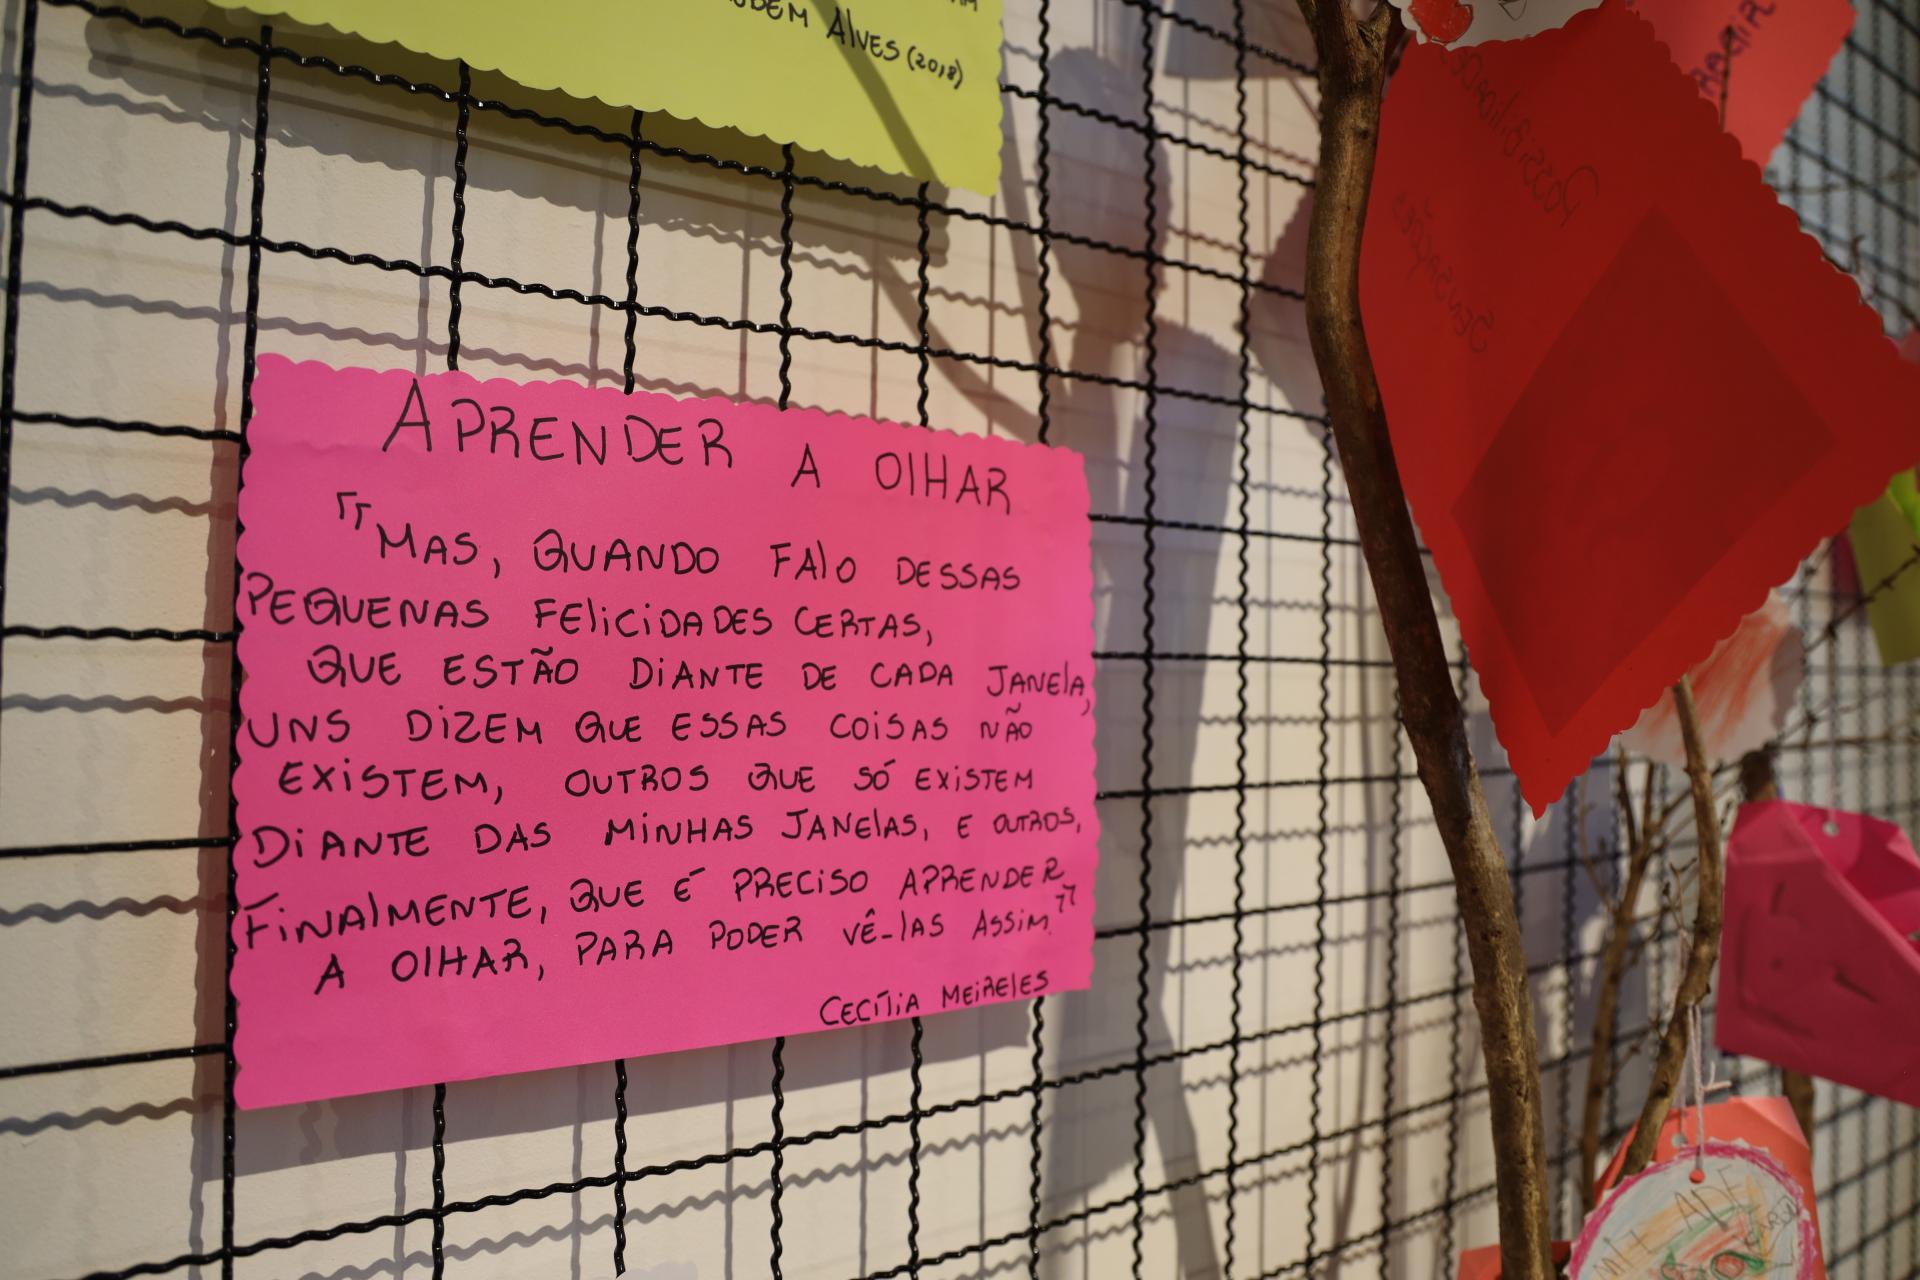 UDEM ALVES (2018)
APRENDER A OLHAR
"MAS, QUANDO FALO DESSAS
PEQUENAS FELICIDADES CERTAS,
QUE ESTÃO DIANTE DE CADA JANELA,
UNS DIZEM QUE ESSAS COISAS NÃO
EXISTEM, OUTROS QUE SÓ EXISTEM
DIANTE DAS MINHAS JANELAS, E OUTROS,
FINALMENTE, QUE É PRECISO APRENDER
A OLHAR, PARA PODER VÊ-LAS ASSIM"
CECÍLIA MEIRELES
POSSIBILIDADES
SENSAÇÕES